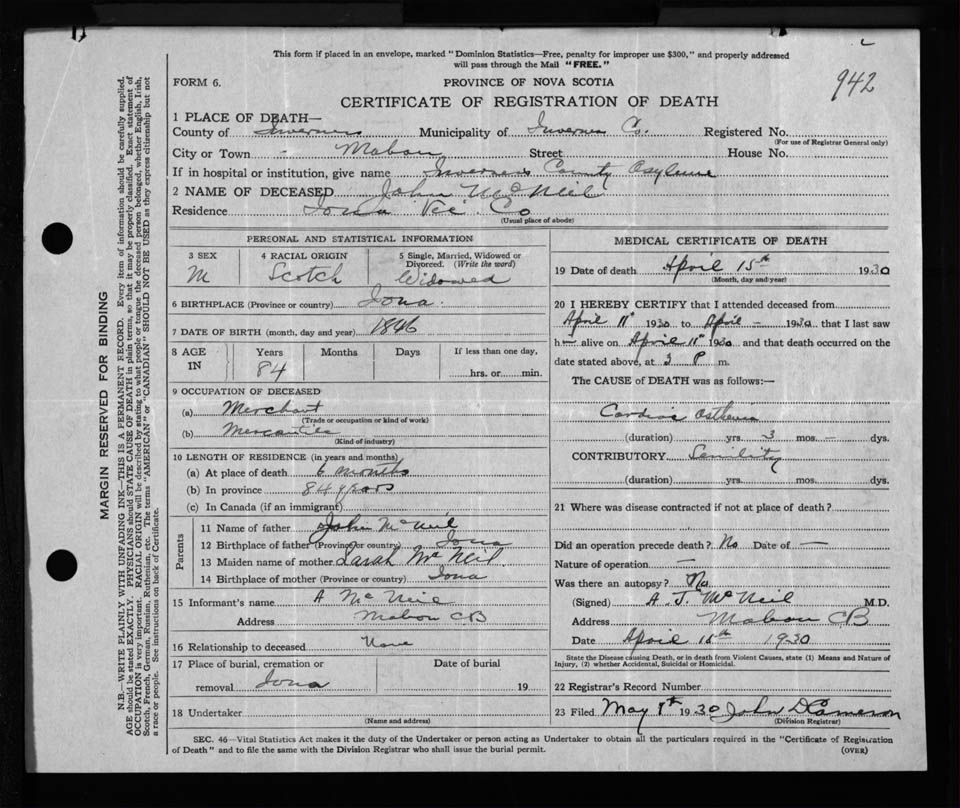 This form if placed in an envelope, marked "Dominion Statistics—Free, penalty for improper use $300," and properly addressed
will pass through the Mail "FREE."
942
FORM 6.
PROVINCE OF NOVA SCOTIA
CERTIFICATE OF REGISTRATION OF DEATH
1 PLACE OF DEATH—
County of Inverness Municipality of Inverness Co. Registered No.
(For use of Registrar General only)
City or Town - Mabou Street House No.
If in hospital or institution, give name Inverness County Asylum
2 NAME OF DECEASED John McNeil
Residence Iona Vic. Co
(Usual place of abode)
PERSONAL AND STATISTICAL INFORMATION
3 SEX 4 RACIAL ORIGIN 5 Single, Married, Widowed or Divorced. (Write the word)
M Scotch Widowed
6 BIRTHPLACE (Province or country) Iona.
7 DATE OF BIRTH (month, day and year) 1846
8 AGE IN Years Months Days If less than one day,
84 hrs. or min.
9 OCCUPATION OF DECEASED
(a) Merchant
(Trade or occupation or kind of work)
(b) Mercantile
(Kind of industry)
10 LENGTH OF RESIDENCE (in years and months)
(a) At place of death 6 months
(b) In province 84 years
(c) In Canada (if an immigrant)
Parents
11 Name of father John McNeil
12 Birthplace of father (Province or country) Iona
13 Maiden name of mother Sarah McNeil
14 Birthplace of mother (Province or country) Iona
15 Informant's name A McNeil
Address Mabou CB
16 Relationship to deceased None
17 Place of burial, cremation or Date of burial
removal Iona 19
18 Undertaker
(Name and address)
MEDICAL CERTIFICATE OF DEATH
19 Date of death April 15th 1930
(Month, day and year)
20 I HEREBY CERTIFY that I attended deceased from
April 11th 1930 to April - 1930 that I last saw
h— alive on April 11th 1930 and that death occurred on the
date stated above, at 3 P m.
The CAUSE of DEATH was as follows:—
Cardiac Asthenia
(duration) yrs. 3 mos. — dys.
CONTRIBUTORY Senility
(duration) yrs. mos. dys.
21 Where was disease contracted if not at place of death?
Did an operation precede death? No Date of —
Nature of operation —
Was there an autopsy? No
(Signed) A. J. McNeil M.D.
Address Mabou CB
Date April 15th 1930
State the Disease causing Death, or in death from Violent Causes, state (1) Means and Nature of
Injury, (2) whether Accidental, Suicidal or Homicidal.
22 Registrar's Record Number
23 Filed May 8th 1930 John D Cameron
(Division Registrar)
SEC. 46—Vital Statistics Act makes it the duty of the Undertaker or person acting as Undertaker to obtain all the particulars required in the "Certificate of Registration
of Death" and to file the same with the Division Registrar who shall issue the burial permit.
(OVER)
MARGIN RESERVED FOR BINDING
N.B.—WRITE PLAINLY WITH UNFADING INK—THIS IS A PERMANENT RECORD. Every item of information should be carefully supplied.
AGE should be stated EXACTLY. PHYSICIANS should STATE CAUSE OF DEATH in plain terms, so that it may be properly classified. Exact statement of
OCCUPATION is very important. RACIAL ORIGIN will be described by stating to what people or tongue the deceased person belonged, whether English, Irish,
Scotch, French, German, Russian, Ruthenian, etc. The terms "AMERICAN" or "CANADIAN" SHOULD NOT BE USED as they express citizenship but not
a race or people. See instructions on back of Certificate.